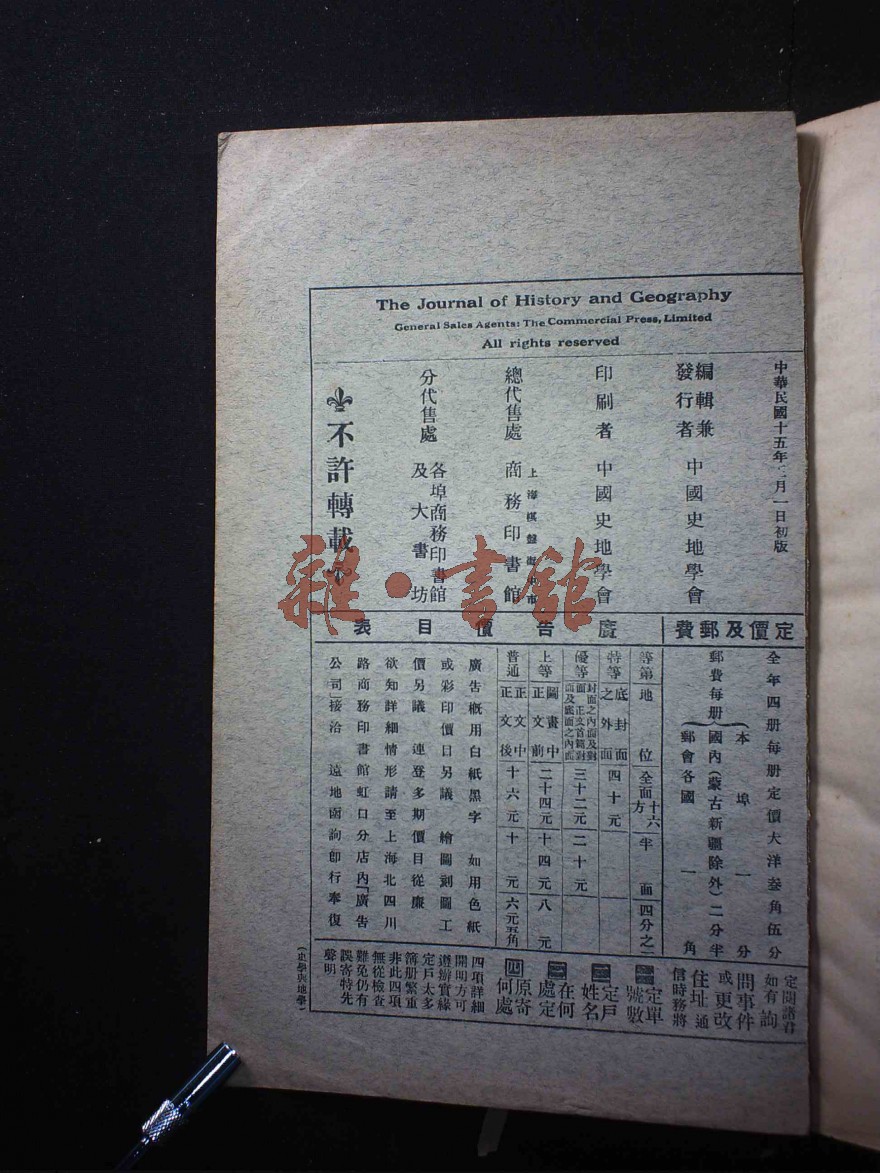 The Journal of History and Geography
General Sales Agents: The Commercial Press, Limited
All rights reserved
中華民國十五年
月一日初版
編輯兼
發行者
中國史地學會
印刷者
中國史地學會
總代售處
上海棋盤街中市
商務印書館
分代售處
各埠商務印書館
及大書坊
不許轉載
雜·書館
定價及郵費
全年四册每册定價大洋叁角伍分
郵費每册
本埠一分
國內(蒙古新疆除外)二分半
郵會各國一角
廣告價目表
等第
地位
全面
十六方
半面
四分之一
特等
底封面
之外面
四十元
優等
封面之內面及對
面 正文首篇對
面及底面之內面
三十二元
二十元
上等
圖畫中
正文前
二十四元
十四元
八元
普通
正文中
正文後
十六元
十元
六元五角
廣告概用白紙黑字 如用色紙
或彩印價目另議 繪圖刻圖工
價另議 連登多期價目從廉
欲知詳細情形請至上海北四川
路商務印書館虹口分店內「廣告
公司」接洽 遠地函詢即行奉復
定閱諸君
如有詢
問事件
或更改
住址通
信時務將
一定單
號數
二定戶
姓名
三在何
處定
四原寄
何處
四項詳細
開明方可
遵辦實緣
定戶太多
簿册繁重
非此四項
無從檢查
難免仍有
誤寄特先
聲明
(史學與地學)